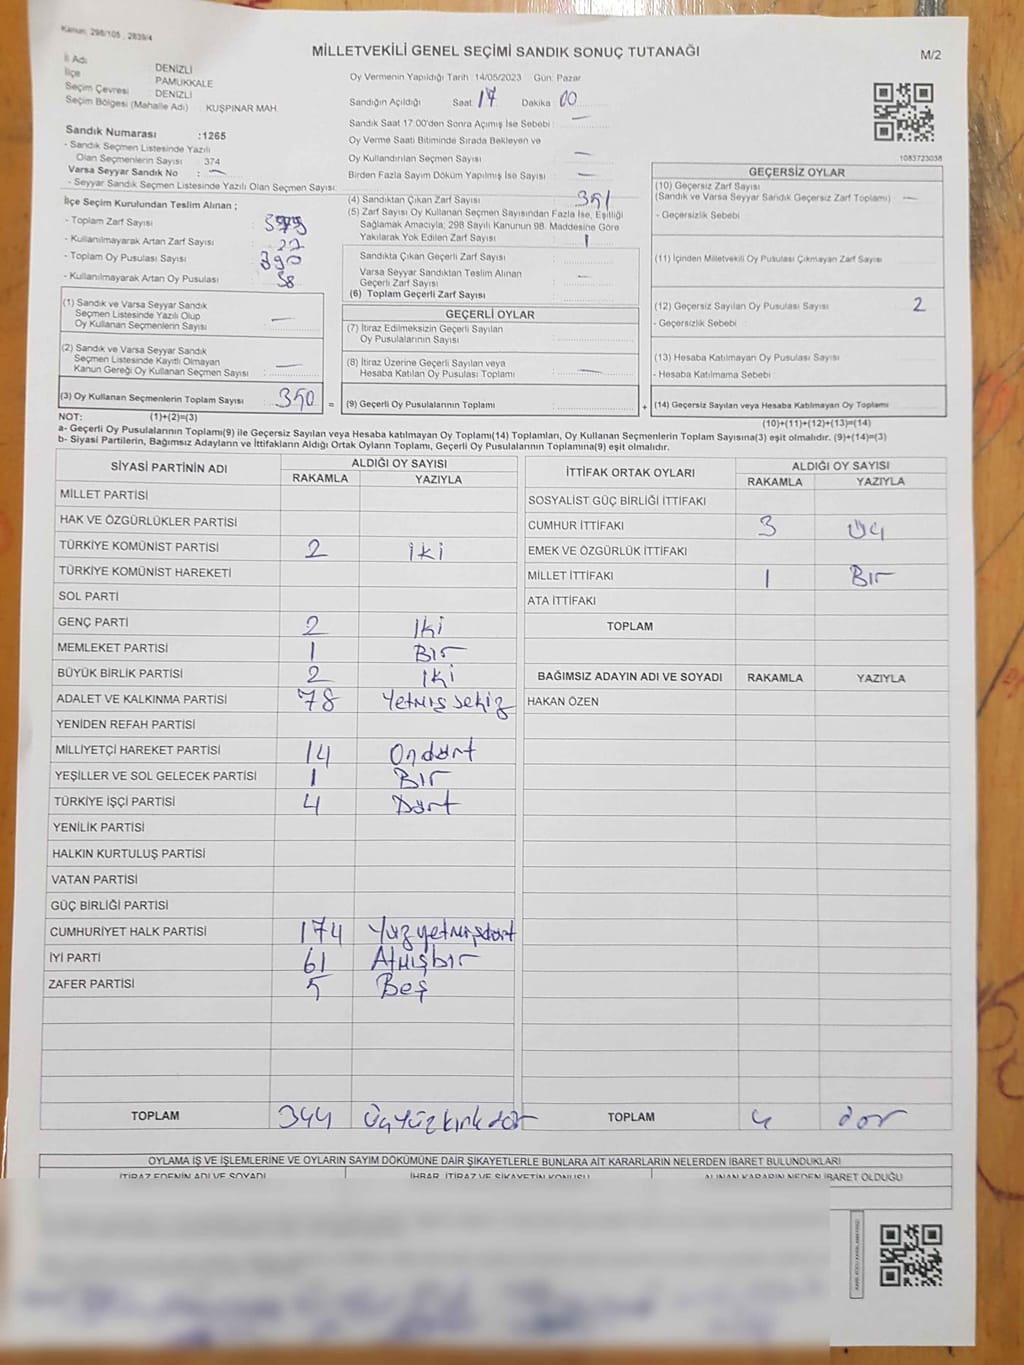 Kanun, 298/105 , 2839/4
MİLLETVEKİLİ GENEL SEÇİMİ SANDIK SONUÇ TUTANAĞI
M/2
İl Adı DENİZLİ
İlçe PAMUKKALE
Seçim Çevresi : DENİZLİ
Seçim Bölgesi (Mahalle Adı) : KUŞPINAR MAH.
Sandık Numarası :1265
- Sandık Seçmen Listesinde Yazılı
Olan Seçmenlerin Sayısı : 374
Varsa Seyyar Sandık No : —
- Seyyar Sandık Seçmen Listesinde Yazılı Olan Seçmen Sayısı:
Oy Vermenin Yapıldığı Tarih : 14/05/2023 Gün: Pazar
Sandığın Açıldığı Saat 17 Dakika 00
Sandık Saat 17:00'den Sonra Açımış İse Sebebi : —
Oy Verme Saati Bitiminde Sırada Bekleyen ve
Oy Kullandırılan Seçmen Sayısı —
Birden Fazla Sayım Döküm Yapılmış İse Sayısı —
1083723038
İlçe Seçim Kurulundan Teslim Alınan ;
- Toplam Zarf Sayısı :
- Kullanılmayarak Artan Zarf Sayısı :
- Toplam Oy Pusulası Sayısı : 390
- Kullanılmayarak Artan Oy Pusulası : 38
(1) Sandık ve Varsa Seyyar Sandık
Seçmen Listesinde Yazılı Olup
Oy Kullanan Seçmenlerin Sayısı : —
(2) Sandık ve Varsa Seyyar Sandık
Seçmen Listesinde Kayıtlı Olmayan
Kanun Gereği Oy Kullanan Seçmen Sayısı : —
(3) Oy Kullanan Seçmenlerin Toplam Sayısı : 350 =
(4) Sandıktan Çıkan Zarf Sayısı : 351
(5) Zarf Sayısı Oy Kullanan Seçmen Sayısından Fazla İse, Eşitliği
Sağlamak Amacıyla; 298 Sayılı Kanunun 98. Maddesine Göre
Yakılarak Yok Edilen Zarf Sayısı : 1
Sandıkta Çıkan Geçerli Zarf Sayısı :
Varsa Seyyar Sandıktan Teslim Alınan
Geçerli Zarf Sayısı : —
(6) Toplam Geçerli Zarf Sayısı :
GEÇERLİ OYLAR
(7) İtiraz Edilmeksizin Geçerli Sayılan
Oy Pusulalarının Sayısı :
(8) İtiraz Üzerine Geçerli Sayılan veya
Hesaba Katılan Oy Pusulası Toplamı : —
(9) Geçerli Oy Pusulalarının Toplamı : +
GEÇERSİZ OYLAR
(10) Geçersiz Zarf Sayısı
(Sandık ve Varsa Seyyar Sandık Geçersiz Zarf Toplamı) : —
- Geçersizlik Sebebi :
(11) İçinden Milletvekili Oy Pusulası Çıkmayan Zarf Sayısı :
(12) Geçersiz Sayılan Oy Pusulası Sayısı : 2
- Geçersizlik Sebebi :
(13) Hesaba Katılmayan Oy Pusulası Sayısı :
- Hesaba Katılmama Sebebi :
(14) Geçersiz Sayılan veya Hesaba Katılmayan Oy Toplamı :
NOT: (1)+(2)=(3) (10)+(11)+(12)+(13)=(14)
a- Geçerli Oy Pusulalarının Toplamı(9) ile Geçersiz Sayılan veya Hesaba katılmayan Oy Toplamı(14) Toplamları, Oy Kullanan Seçmenlerin Toplam Sayısına(3) eşit olmalıdır. (9)+(14)=(3)
b- Siyasi Partilerin, Bağımsız Adayların ve İttifakların Aldığı Ortak Oyların Toplamı, Geçerli Oy Pusulalarının Toplamına(9) eşit olmalıdır.
SİYASİ PARTİNİN ADI ALDIĞI OY SAYISI
RAKAMLA YAZIYLA
MİLLET PARTİSİ
HAK VE ÖZGÜRLÜKLER PARTİSİ
TÜRKİYE KOMÜNİST PARTİSİ 2 iki
TÜRKİYE KOMÜNİST HAREKETİ
SOL PARTİ
GENÇ PARTİ 2 iki
MEMLEKET PARTİSİ 1 Bir
BÜYÜK BİRLİK PARTİSİ 2 iki
ADALET VE KALKINMA PARTİSİ 78 Yetmiş sekiz
YENİDEN REFAH PARTİSİ
MİLLİYETÇİ HAREKET PARTİSİ 14 Ondört
YEŞİLLER VE SOL GELECEK PARTİSİ 1 Bir
TÜRKİYE İŞÇİ PARTİSİ 4 Dört
YENİLİK PARTİSİ
HALKIN KURTULUŞ PARTİSİ
VATAN PARTİSİ
GÜÇ BİRLİĞİ PARTİSİ
CUMHURİYET HALK PARTİSİ 174 Yüzyetmişdört
İYİ PARTİ 61 Atmışbir
ZAFER PARTİSİ 5 Beş
TOPLAM 344 Üçyüzkırkdör
İTTİFAK ORTAK OYLARI ALDIĞI OY SAYISI
RAKAMLA YAZIYLA
SOSYALİST GÜÇ BİRLİĞİ İTTİFAKI
CUMHUR İTTİFAKI 3 Üç
EMEK VE ÖZGÜRLÜK İTTİFAKI
MİLLET İTTİFAKI 1 Bir
ATA İTTİFAKI
TOPLAM
BAĞIMSIZ ADAYIN ADI VE SOYADI RAKAMLA YAZIYLA
HAKAN ÖZEN
TOPLAM 4 dör
OYLAMA İŞ VE İŞLEMLERİNE VE OYLARIN SAYIM DÖKÜMÜNE DAİR ŞİKAYETLERLE BUNLARA AİT KARARLARIN NELERDEN İBARET BULUNDUKLARI
İTİRAZ EDENİN ADI VE SOYADI İHBAR, İTİRAZ VE ŞİKAYETİN KONUSU ALINAN KARARIN NEDEN İBARET OLDUĞU